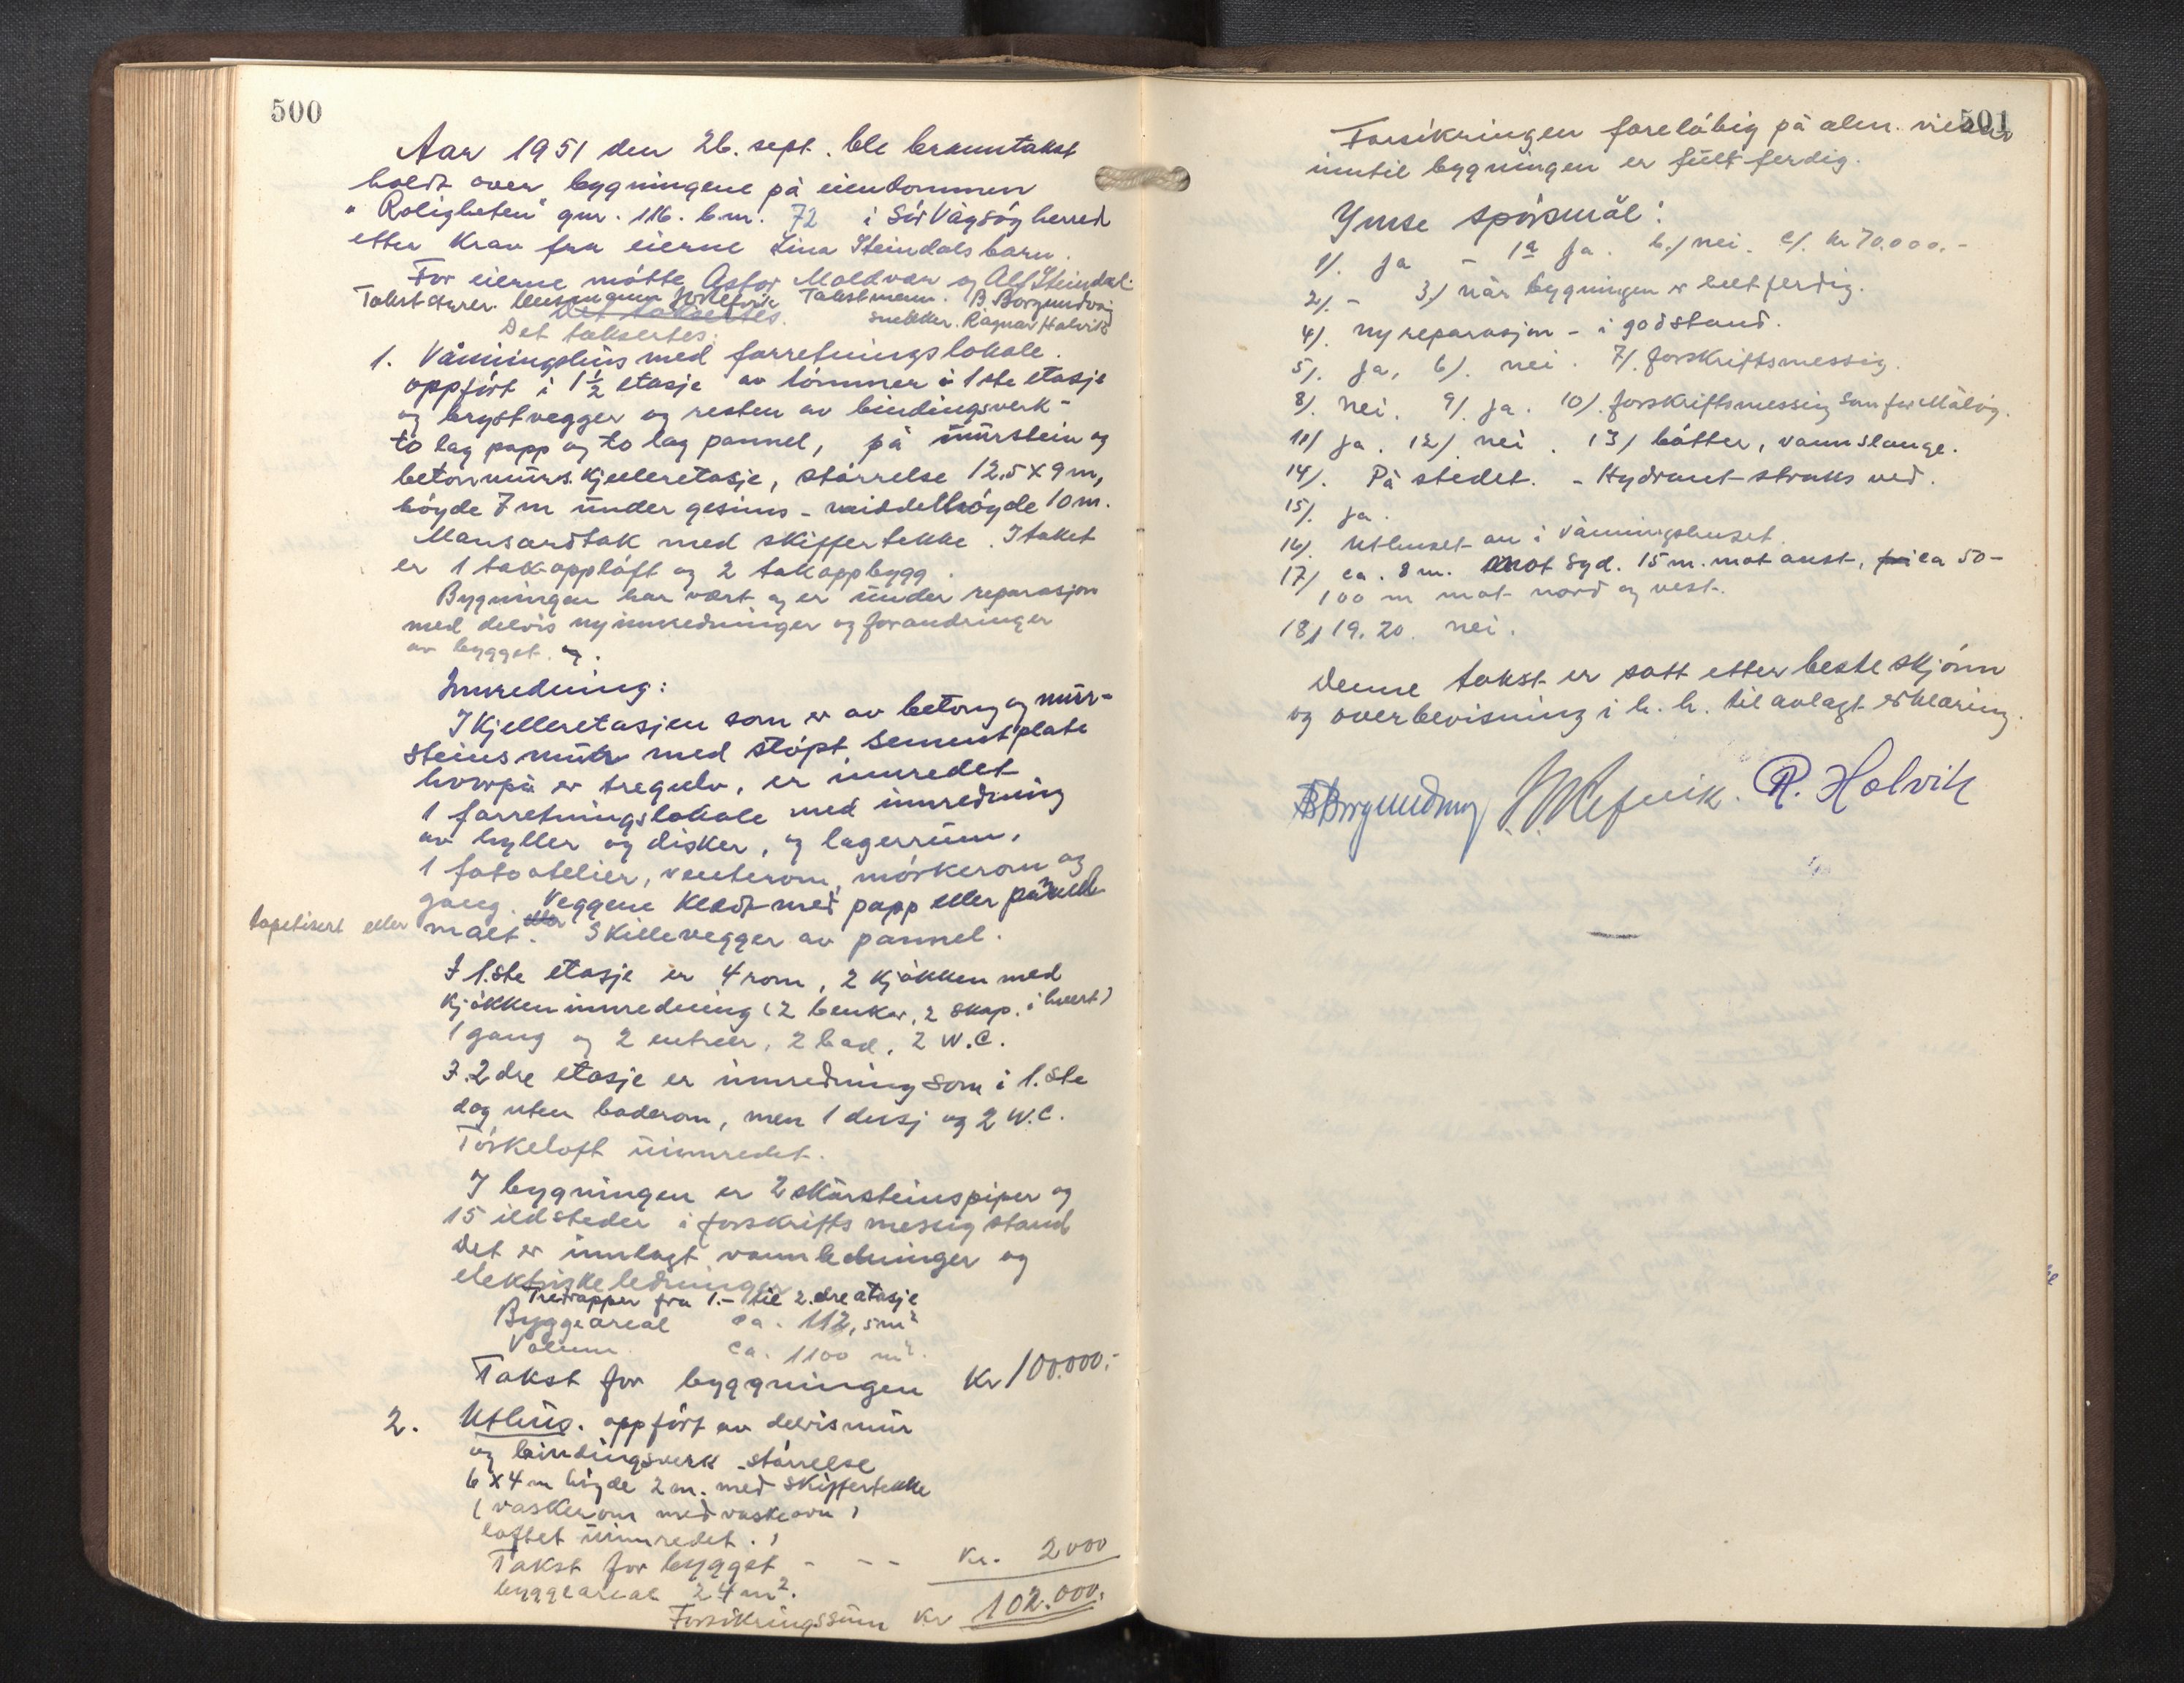 500
Aar 1951 den 26. sept. ble branntakst
holdt over bygningene på eiendommen
"Roligheten" gnr. 116. b.nr. 72 i Sör Vågsöy herred
etter krav fra eierne Lina Steindals barn.
For eierne mötte Astor Maldvær og Alf Steindal.
Takststyrer. Refvik Takstmenn. B Borgundvåg
snekker. Ragnar Halvik
Det taksertes.
Det taksertes:
1. Våningshus med forretningslokale.
oppfört i 1½ etasje av tömmer i 1ste etasje
og brystvegger og resten av bindingsverk-
to lag papp og to lag pannel, på murstein og
betonmurs. Kjelleretasje, störrelse 12,5 X 9 m,
höyde 7 m under gesims - middelhöyde 10 m.
Mansardtak med skiffertekke. I taket
er 1 takoppløft og 2 takoppbygg.
Bygningen har vært og er under reparasjon
med delvis ny innredninger og forandringer
av bygget. og.
Innredning:
I Kjelleretasjen som er av betong og mur-
steinsmur med stöpt sementplate
hvorpå er tregulv, er innredet
1 forretningslokale med innredning
av hyller og disker, og lagerrum,
1 fotoatelier, venterom, mörkerom og
gang. Veggene kledt med papp eller pannel
tapetisert eller malt. Skillevegger av pannel.
I 1.ste etasje er 4 rom, 2 kjökken med
kjökkeninnredning (2 benker, 2 skap. i hvert)
1 gang og 2 entreer, 2 bad, 2 W.C.
I 2dre etasje er innredning som i 1.ste
dog uten baderom, men 1 dusj og 2 W.C.
Törkeloft uinnredet.
I bygningen er 2 skorsteinspiper og
15 ildsteder i forskriftsmessig stand
Det er innlagt vannledninger og
elektriske ledninger
Tretrapper fra 1.- til 2.dre etasje
Byggeareal ca. 112,5 m²
Volum ca. 1100 m².
Takst for byggningen Kr 100.000.-
2. Uthus. oppfört av delvis mur
og bindingsverk störrelse
6 X 4 m höyde 2 m. med skiffertekke
(vaskerom med vaskeovn,
loftet uinnredet.)
Takst for bygget - - - Kr. 2000
byggeareal 24 m².
Forsikringssum Kr 102.000.
501
Forsikringen foreløbig på alm. vilkår
inntil bygningen er fullt ferdig.
Ymse spörsmål:
1/. ja - 1a ja. b./ nei. c/. kr 70.000.-
2/. - 3./ når bygningen er helt ferdig.
4/. ny reparasjon - i god stand.
5/. ja, 6/. nei. 7/. forskriftsmessig.
8/. nei. 9/. ja. 10/. forskriftsmessig som for Målöy.
11/ ja. 12/ nei. 13/ bötter, vannslange.
14/. På stedet. - Hydrant straks ved.
15/. ja.
16/. Uthuset - nr 1 våningshuset.
17/ ca. 8 m. mot syd. 15 m. mot aust, ca 50-
100 m mot nord og vest.
18/ 19. 20. nei.
Denne takst er satt etter beste skjönn
og overbevisning i h. h. til avlagt erklæring.
B Borgundvåg Refvik. R. Halvik